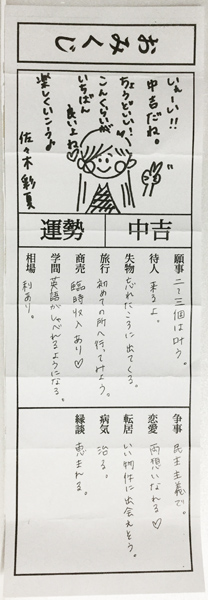 おみくじ
いぇーい!!
中吉だね。
ちょうどいい!
こんくらいが
いちばん
良いよね♡
楽しくいこうよ♪
佐々木彩夏
中吉
運勢
願事 二て三個は叶う。
待人 来るよ。
失物 忘れたころに出てくる。
旅行 初めての所へ行ってみよう。
商売 臨時収入あり♡
学問 英語がしゃべれるようになる。
相場 利あり。
争事 民主主義で。
恋愛 両想いなれる♡
転居 いい物件に出会えそう。
病気 治る。
縁談 恵まれる。